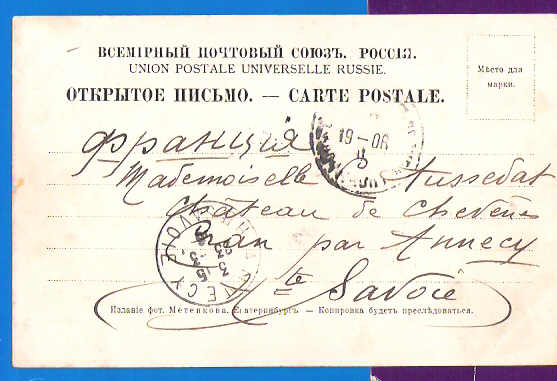 ВСЕМІРНЫЙ ПОЧТОВЫЙ СОЮЗЪ. РОССІЯ.
UNION POSTALE UNIVERSELLE RUSSIE.
Мѣсто для
марки.
ОТКРЫТОЕ ПИСЬМО. — CARTE POSTALE.
Франція
19-06
Mademoiselle Aussedat
Château de Chevênes
Cran par Annecy
Hte Savoie
ANNECY
SAVOIE
Изданіе фот. Метенкова. Екатеринбургъ. — Копировка будетъ преслѣдоваться.